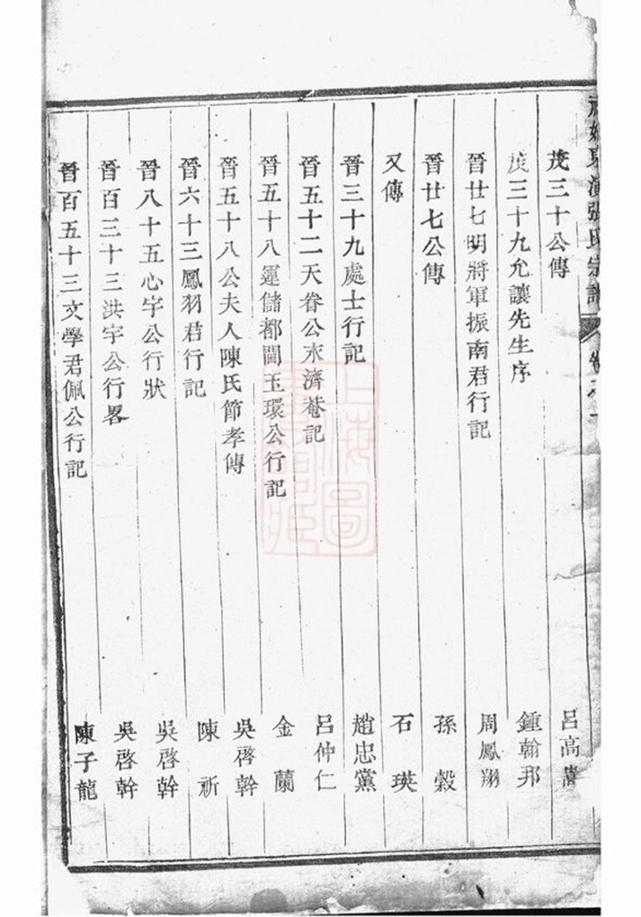 張氏宗譜 卷之一
茂三十公傳 呂高
茂三十九允讓先生序 鍾翰邦
晉廿七明將軍振南君行記 周鳳翔
晉廿七公傳 孫穀
又傳 石瑛
晉三十九處士行記 趙忠黨
晉五十二天眷公永濟菴記 呂仲仁
晉五十八運儲都閫玉環公行記 金蘭
晉五十八公夫人陳氏節孝傳 吳啓幹
晉六十三鳳羽君行記 陳祈
晉八十五心宇公行狀 吳啓幹
晉百三十三洪宇公行畧 吳啓幹
晉百五十三文學君佩公行記 陳子龍
上海圖書館藏